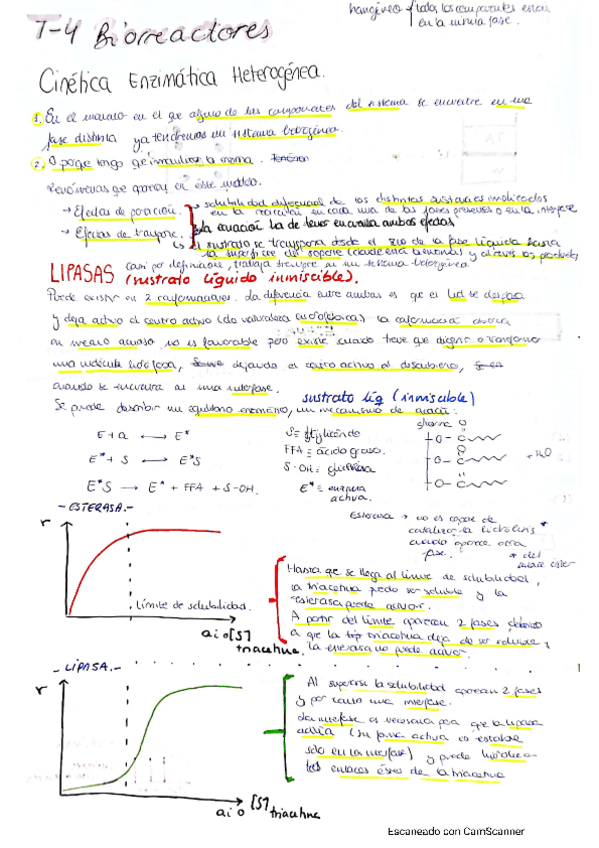 homogéneo → todos los componentes están
en la misma fase.
T-4 Biorreactores
Cinética Enzimática Heterogénea.
1. En el momento en el que alguno de los componentes del sistema se encuentre en una
fase distinta ya tendremos un sistema heterogéneo.
2. O porque tengo que inmovilizar la misma.
Fenómenos que aparecen en este modelo.
→ Efectos de partición.
→ Efectos de transporte.
→ solubilidad diferencial de los distintos sustancias implicadas
en la reacción en cada una de las fases presentes o en la interfase
la ecuación ha de tener en cuenta ambos efectos
→ El sustrato se transporta desde el seno de la fase líquida hasta
la superficie del soporte
y al revés los productos
Casi por definición, trabaja siempre en un sistema heterogéneo
LIPASAS (sustrato líquido inmiscible).
Puede existir en 2 conformaciones. La diferencia entre ambas es que el lid se desplaza
y deja activo el centro activo (de naturaleza hidrofóbica) la conformación abierta
en medio acuoso no es favorable pero existe cuando tiene que digerir o transformar
una molécula lipídica, dejando el centro activo al descubierto,
cuando se encuentra en una interfase.
sustrato líq (inmiscible)
Se puede describir un equilibrio enzimático, un mecanismo de acción:
E + a ⟷ E*
E* + S ⟷ E*S
E*S → E* + FFA + S-OH.
S ≡ triglicérido
FFA ≡ ácido graso.
S-OH ≡ glicérido
E* ≡ enzima
activa.
O
-O-C
O
-O-C
O
-O-C
+ H2O
Esterasa → no es capaz de
catalizar la hidrólisis *
cuando aparece otra
fase.
* del
enlace éster
- ESTERASA.-
r
Límite de solubilidad.
[S]
triacetina.
Hasta que se llega al límite de solubilidad,
la triacetina puede ser soluble y la
esterasa puede actuar.
A partir del límite aparecen 2 fases debido
a que la triacetina deja de ser soluble y
la esterasa no puede actuar.
- LIPASA.-
r
[S]
triacetina
Al superarse la solubilidad aparecen 2 fases
y por tanto una interfase.
La interfase es necesaria para que la lipasa
actúe (su forma activa es estable
sólo en la interfase) y puede hidrolizar
los enlaces éster de la triacetina
Escaneado con CamScanner